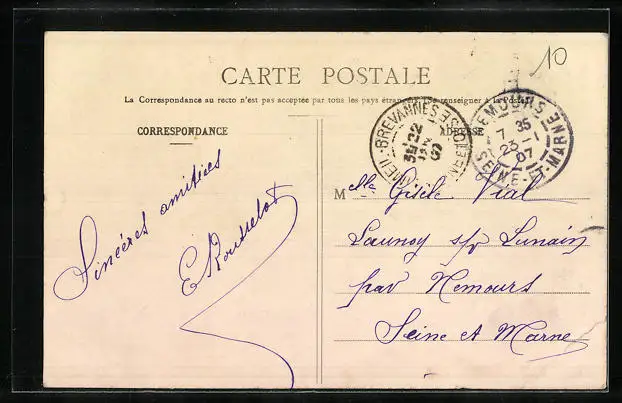 10
CARTE POSTALE
La Correspondance au recto n'est pas acceptée par tous les pays étrangers (Se renseigner à la Poste)
CORRESPONDANCE
ADRESSE
MEIL-BREVANNES SEINE ET OISE
3E 22
07
NEMOURS
7 35
23 -1
07
SEINE-ET-MARNE
Sincères amitiées
Melle Gisèle Vial
Launoy s/r Lunain
par Nemours
Seine et Marne